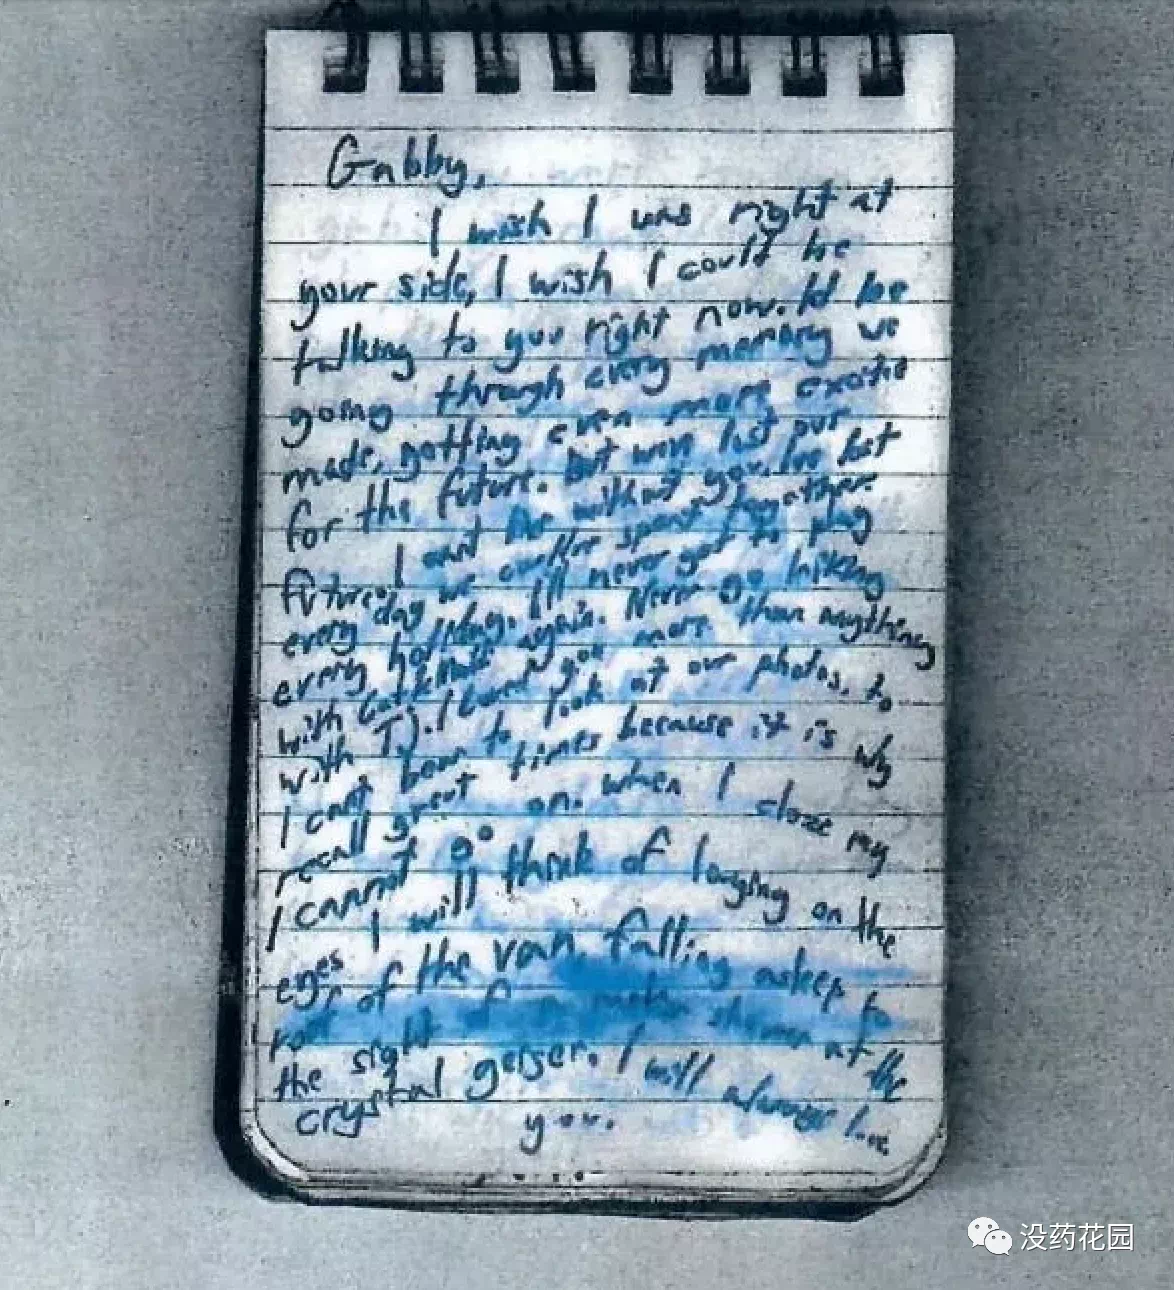 Gabby,
I wish I was right at
your side, I wish I could be
talking to you right now. Id be
going through every memory we
made, getting even more excited
for the future. But weve lost our
future. I cant live without you. Ive lost
every day we couldve spent together,
every holiday. Ill never get to play
with again. Never go hiking
with TJ. I loved you more than anything
I cant bear to look at our photos, to
recall great times because it is why
I cannot go on. when I close my
eyes I will think of laughing on the
roof of the van, falling asleep to
the sight of at the
crystal geiser. I will always love
you.
没药花园